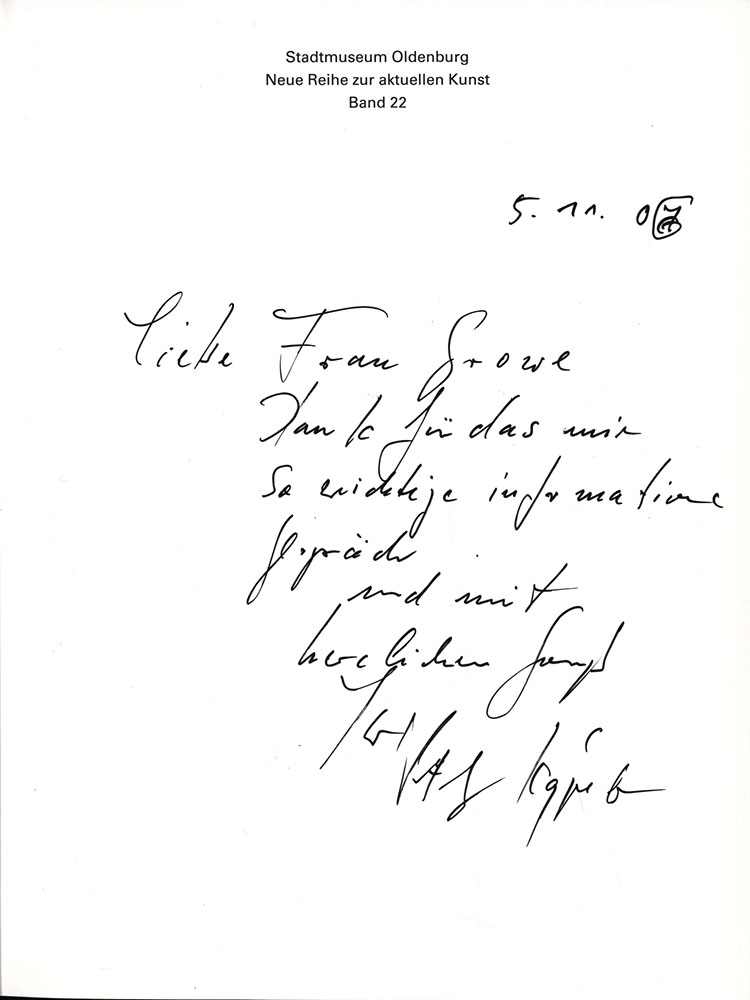 Stadtmuseum Oldenburg
Neue Reihe zur aktuellen Kunst
Band 22
5. 11. 07
Liebe Frau Growe
Dank für das mir
so wichtige informative
Gespräch
und mit
herzlichen Gruß